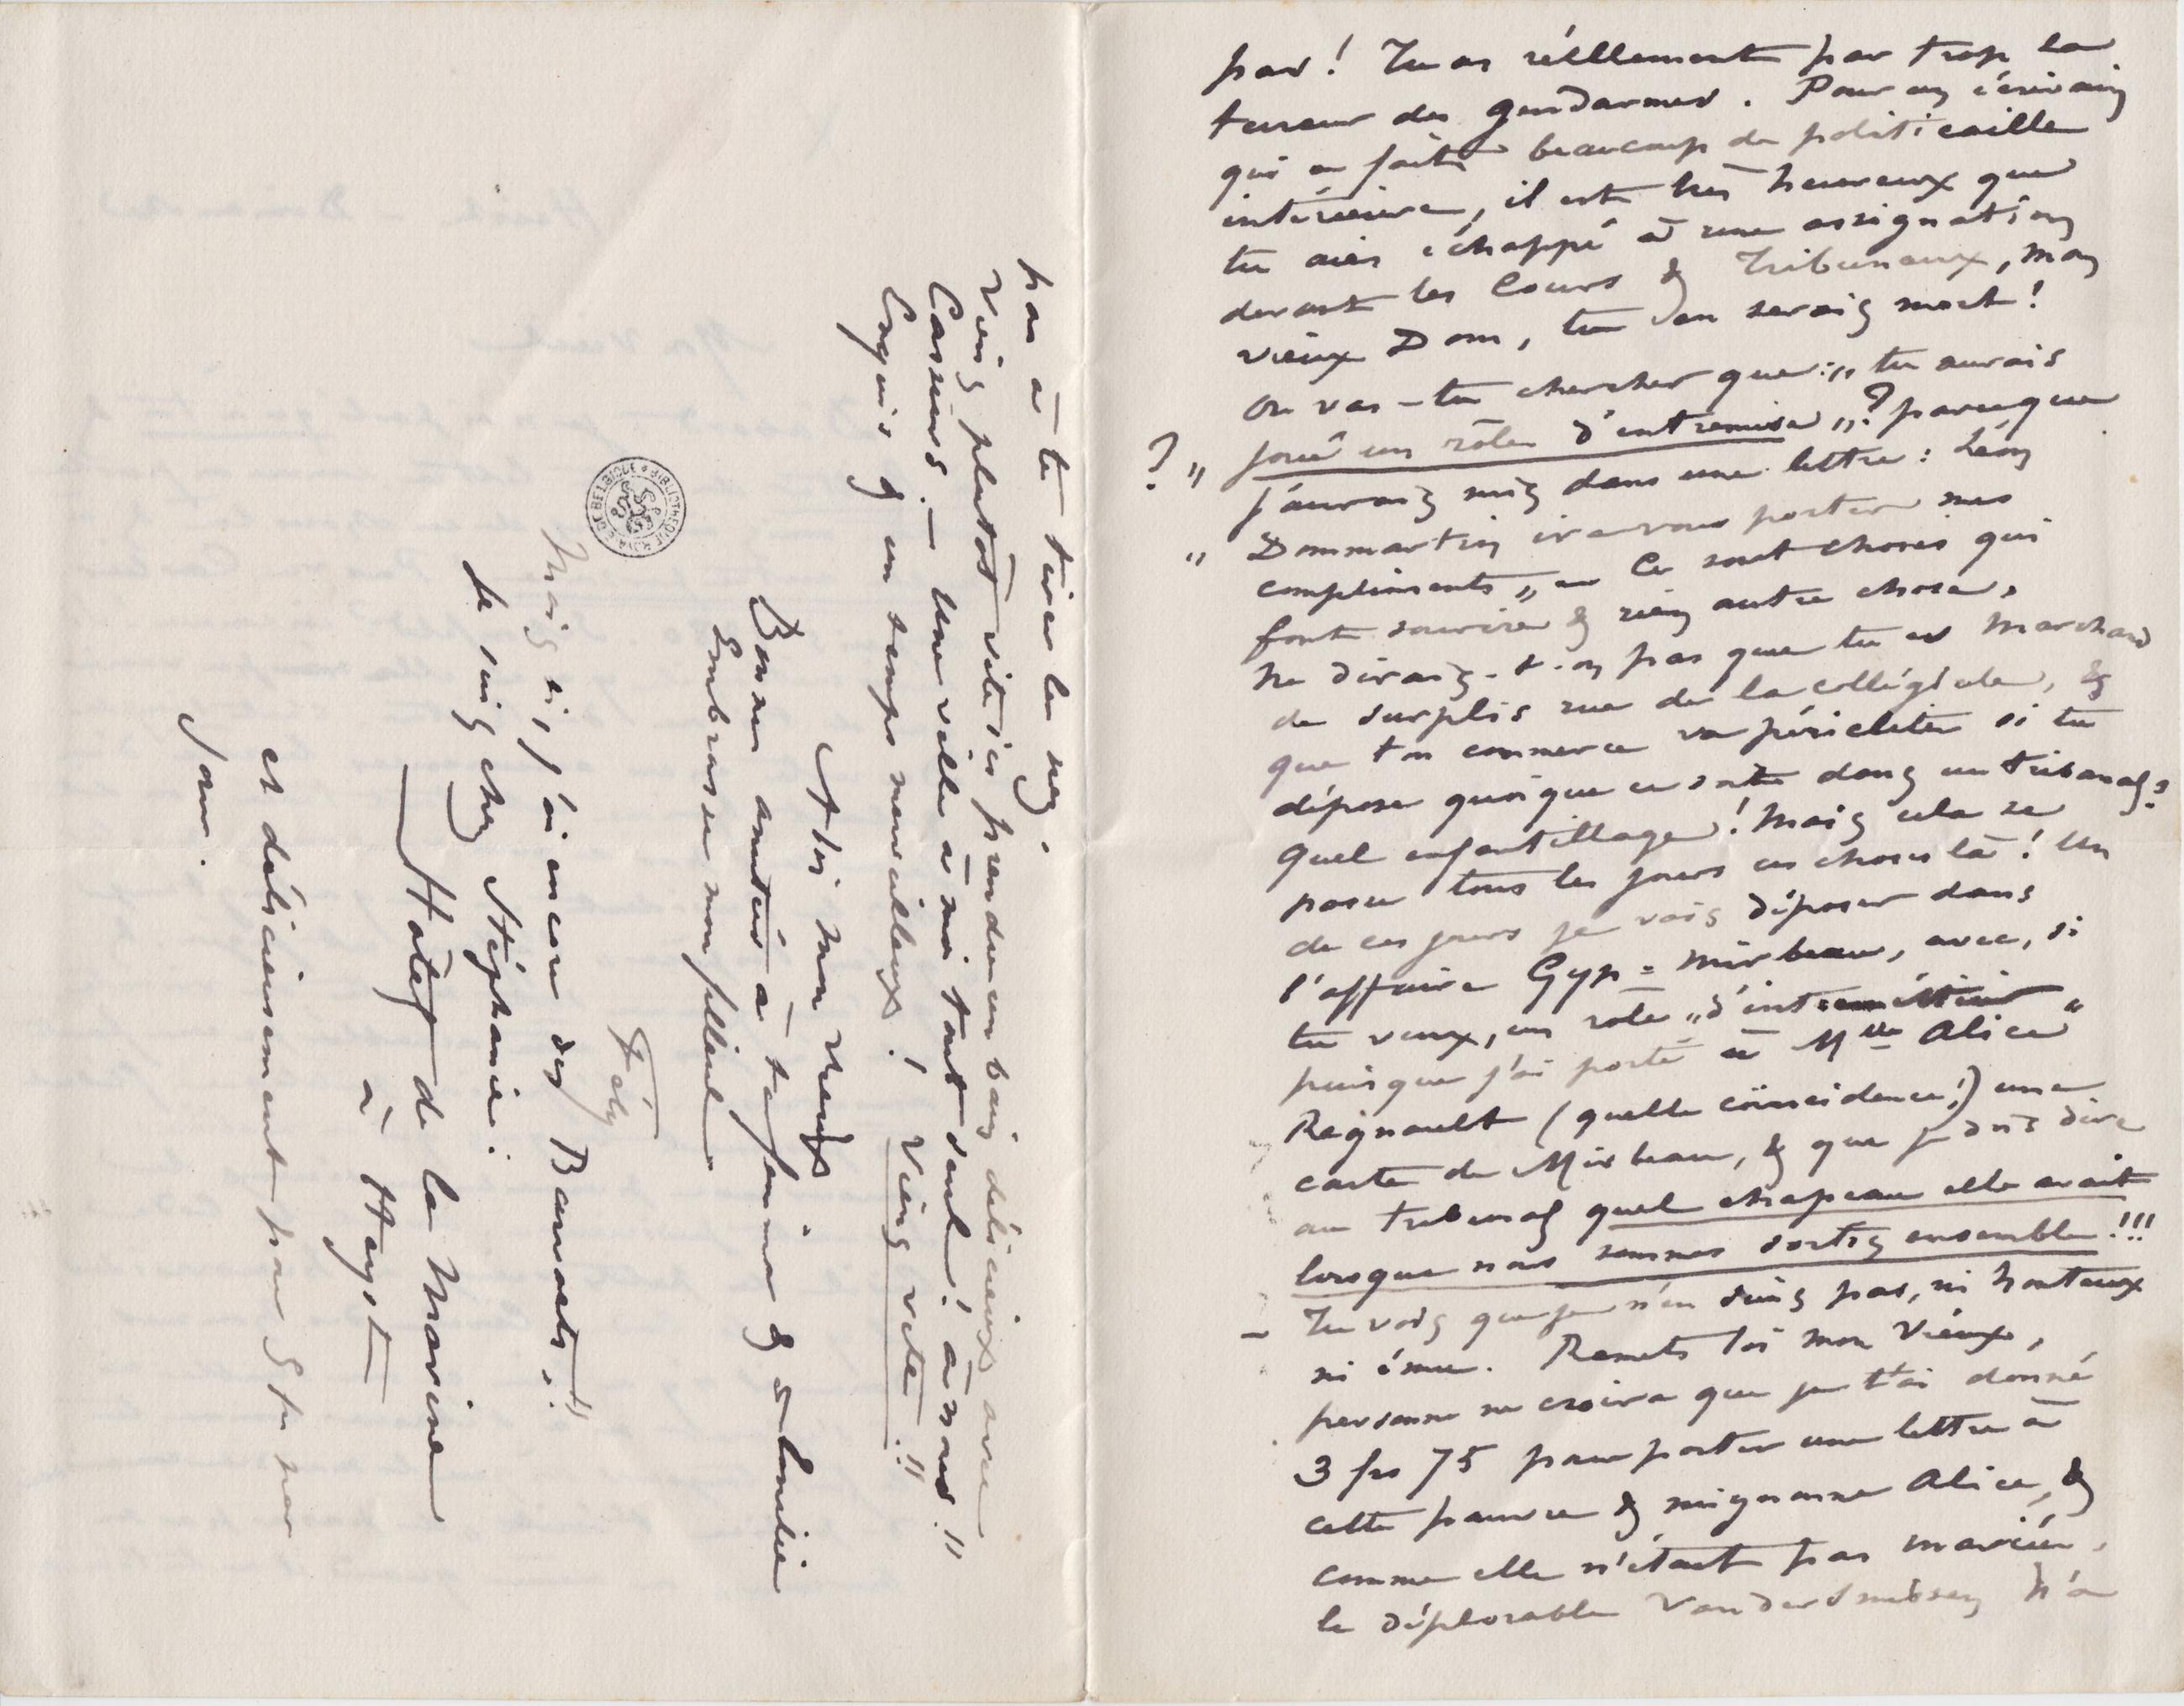 pas! Tu as réellement par trop la
terreur des gendarmes. Pour un écrivain
qui a fait beaucoup de politicaille
intérieure, il est très heureux que
tu aies échappé à une assignation
devant les Cours & Tribunaux, mon
vieux Dom, tu en serais mort!
Où vas-tu chercher que: „tu aurais
? „ joué un rôle d'entremise„? parceque
j'aurais mis dans une lettre: Léon
„ Dommartin ira vous porter mes
compliments„ — Ce sont choses qui
font sourire & rien autre chose.
Ne dirais-t-on pas que tu es marchand
de surplis rue de la collégiale, &
que ton commerce va péricliter si tu
dépose quoique ce soit dans un tribunal?
Quel enfantillage! Mais cela se
passe tous les jours ces choses là! Un
de ces jours je vais déposer dans
l'affaire Gyp = Mirbeau, avec, si
tu veux, un rôle „d'entremetteur"
puisque j'ai porté à Mlle Alice"
Regnault (quelle coïncidence!) une
carte de Mirbeau, & que je dois dire
au tribunal quel chapeau elle avait
lorsque nous sommes sortis ensemble!!!
— Tu vois que je n'en suis pas, ni honteux
ni ému. Remets toi mon vieux,
personne ne croira que je t'ai donné
3 frs 75 pour porter une lettre à
cette pauvre & mignonne Alice, &
comme elle n'était pas mariée,
le déplorable Vandersmissen n'a
pas à te tirer le nez.
Viens plutôt vite ici prendre un bain délicieux avec
Casseurs. — Une ville à moi tout seul! à nous!!
Exquis & un temps merveilleux! Viens vite!!
A toi mon vieux
Bonnes amitiés à ta femme & à Emilie
Embrasse mon filleul.
Fély
Mais si, j'ai encore des Barnets!!
Je suis chez Stéphanie:
— Hôtel de la Marine
à Heyst
et délicieusement pour 6 frs par
jour.
BIBLIOTHÈQUE ROYALE DE BELGIQUE